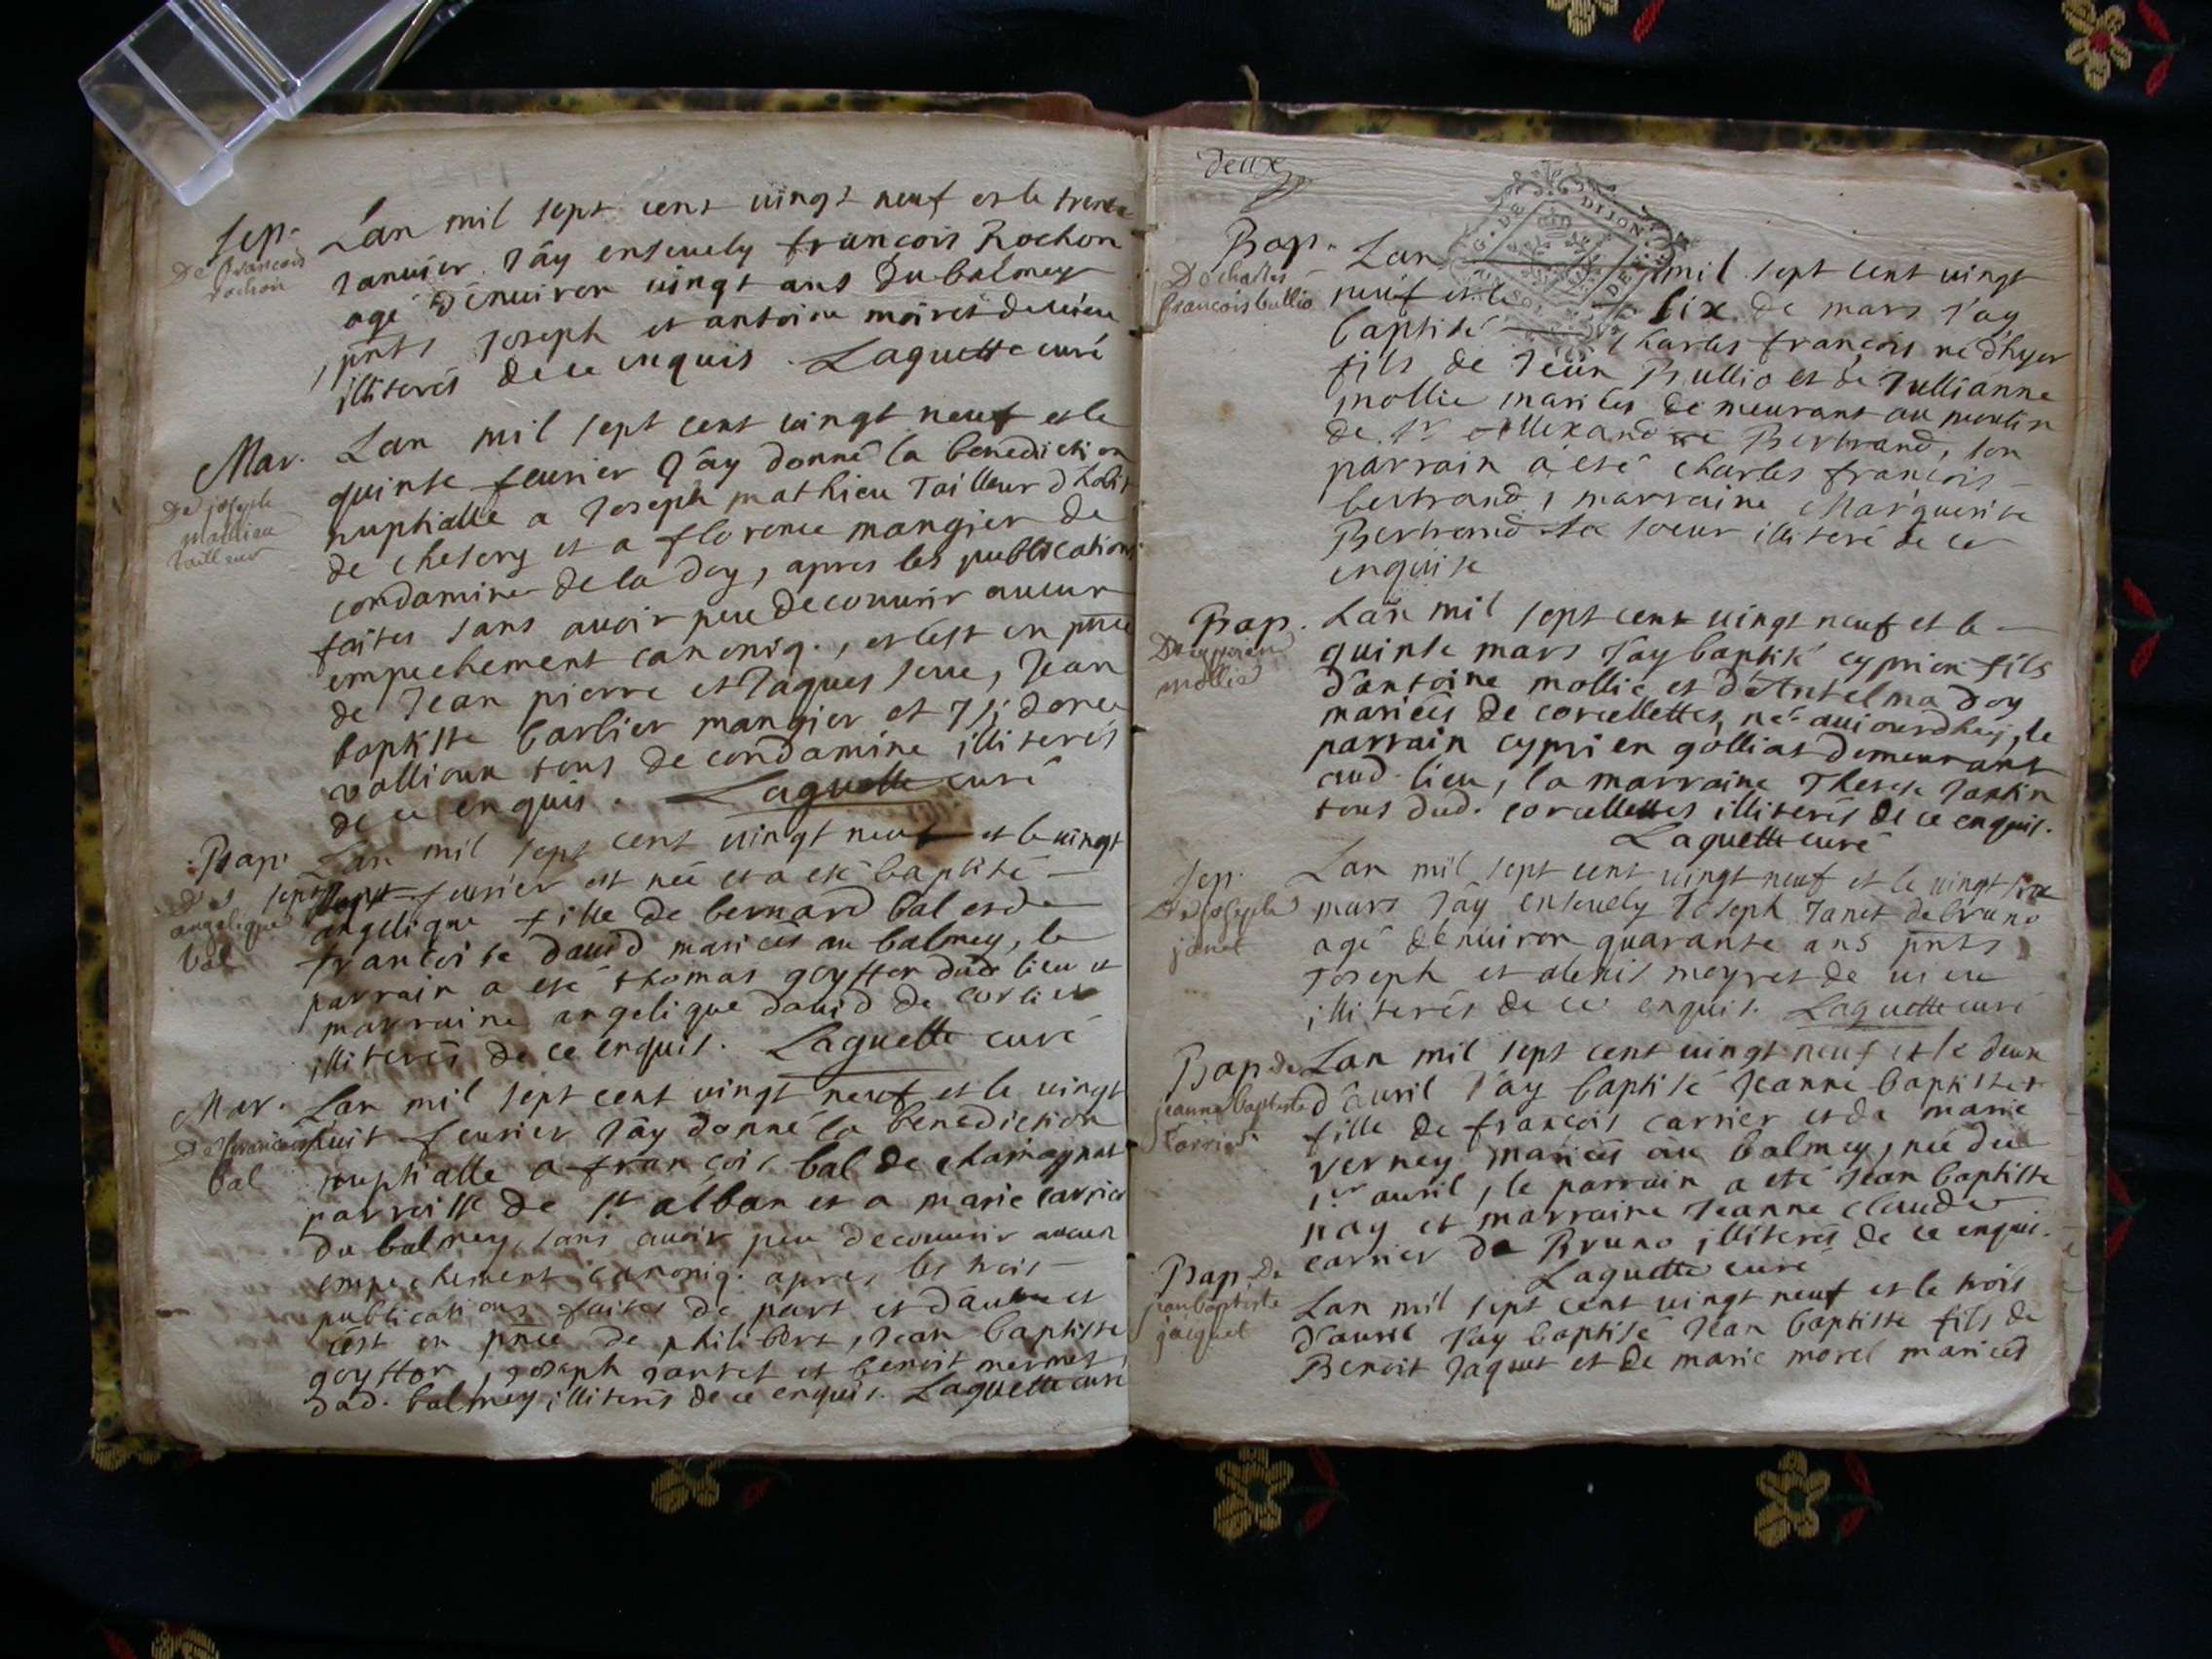 Sep.
De francois
rochon
Lan mil sept cent vingt neuf et le trente
Janvier Jây ensevely françois Rochon
agé dénviron vingt ans du balmey
pnts Joseph et antoine moiret de vieu
illiterés de ce enquis. Laguette curé
Mar.
De joseph
mathieu
tailleur
Lan mil sept cent vingt neuf et le
quinse fevrier Jây donné la benediction
nuptialle a Joseph mathieu Tailleur dhabit
de chesery et a florence mangier de
condamine de la doy, apres les publications
faites sans avoir peu decouvrir aucun
empechement canoniq., et cest en pnce
de Jean pierre et Jaques serre, Jean
baptiste barbier mangier et
vallioux tous de condamine illiterés
de ce enquis. Laguette curé
Bap.
angelique
bal
Lan mil sept cent vingt neuf et le vingt
sept fevrier est née et a eté baptisé
angelique fille de bernard bal et de
francoise david mariés au balmey, le
parrain a eté thomas goyffon dud lieu et
marraine angelique david de corlier
illiterés de ce enquis. Laguette curé
Mar.
De francois
bal
Lan mil sept cent vingt neuf et le vingt
huit fevrier Jây donné la benediction
nuptialle a françois bal de chamagnat
parroisse de st alban et a marie carrier
du balmey, sans avoir peu decouvrir aucun
empechement canoniq. apres les trois
publications faites de part et dâutre et
cest en pnce de philibert, Jean baptiste
goyffon, Joseph Jantet et benoit mermet
dud. balmey illiterés de ce enquis. Laguette curé
deux
G. DE DIJON
Bap.
De charles
francois bullio
Lan mil sept cent vingt
neuf et le six de mars J'ay
baptisé charles françois né dhyer
fils de Jean Bullio et de Jullianne
mollie mariés demeurant au moulin
de sr Allexandre Bertrand, son
parrain a eté charles francois
bertrand, marraine Marguerite
Bertrand sa soeur illiteré de ce
enquise
Bap.
De cyprien
mollie
Lan mil sept cent vingt neuf et le
quinse mars J'ay baptisé cyprien fils
d'antoine mollie et d'Antelma Doy
mariés de corcellettes, né aujourdhuy, le
parrain cyprien golliat demeurant
aud. lieu, la marraine Therese Jantin
tous dud. corcellettes illiterés de ce enquis.
Laguette curé
Sep.
De joseph
janet
Lan mil sept cent vingt neuf et le vingt six
mars Jây ensevely Joseph Janet de bruno
agé dénviron quarante ans pnts
Joseph et denis moyret de vieu
illiterés de ce enquis. Laguette curé
Bap de
jeanne baptiste
Carrier
Lan mil sept cent vingt neuf et le deux
d'avril J'ay baptisé Jeanne baptiste
fille de françois carrier et de marie
verney mariés au balmey, née du
1er avril, le parrain a eté Jean baptiste
nay et marraine Jeanne claude
carrier de Bruno illiterés de ce enquis.
Laguette curé
Bap. De
jean baptiste
jacquet
Lan mil sept cent vingt neuf et le trois
d'avril J'ay baptisé Jean baptiste fils de
Benoit Jaquet et de marie morel mariés